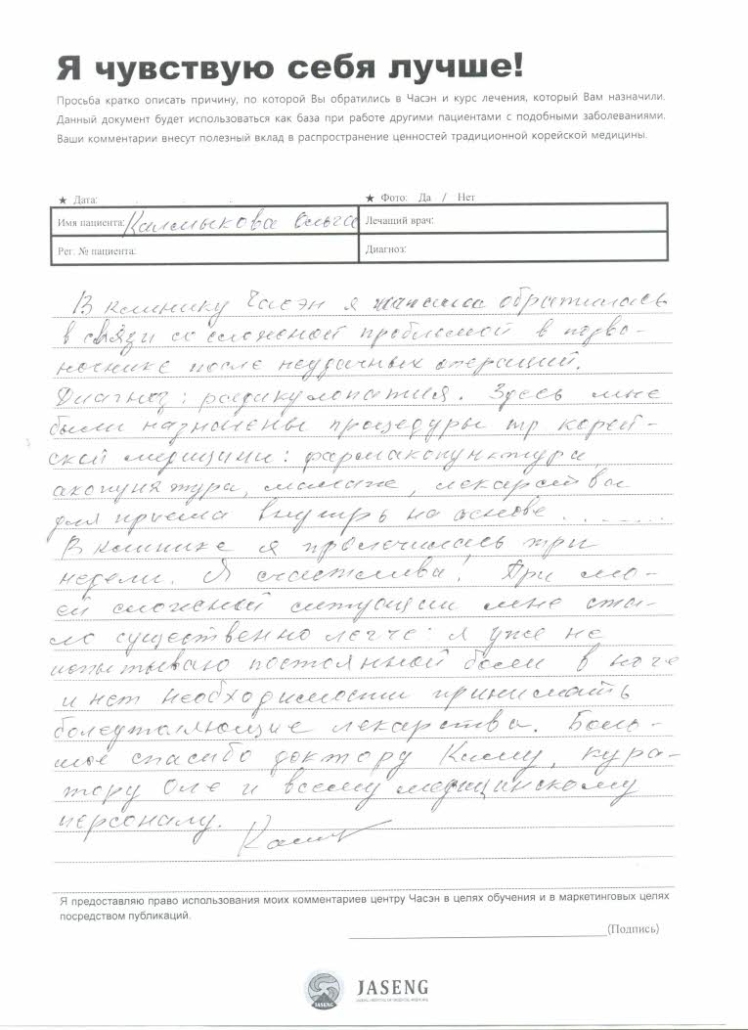 Я чувствую себя лучше!
Просьба кратко описать причину, по которой Вы обратились в Часэн и курс лечения, который Вам назначили.
Данный документ будет использоваться как база при работе другими пациентами с подобными заболеваниями.
Ваши комментарии внесут полезный вклад в распространение ценностей традиционной корейской медицины.
★ Дата: ★ Фото: Да / Нет
Имя пациента: Калмыкова Ольга Лечащий врач:
Рег. № пациента: Диагноз:
В клинику Часэн я обратилась
в связи со сложной проблемой в позво-
ночнике после неудачных операций.
Диагноз: радикулопатия. Здесь мне
были назначены процедуры корей-
ской медицины: фармакопунктура,
акопунктура, массаж, лекарства
для приема внутрь на основе .......
В клинике я пролечилась три
недели. Я счастлива! При мо-
ей сложной ситуации мне ста-
ло существенно легче: я уже не
испытываю постоянной боли в ноге
и нет необходимости принимать
болеутоляющие лекарства. Боль-
шое спасибо доктору Киму, кура-
тору Оле и всему медицинскому
персоналу.
Я предоставляю право использования моих комментариев центру Часэн в целях обучения и в маркетинговых целях
посредством публикаций.
(Подпись)
JASENG